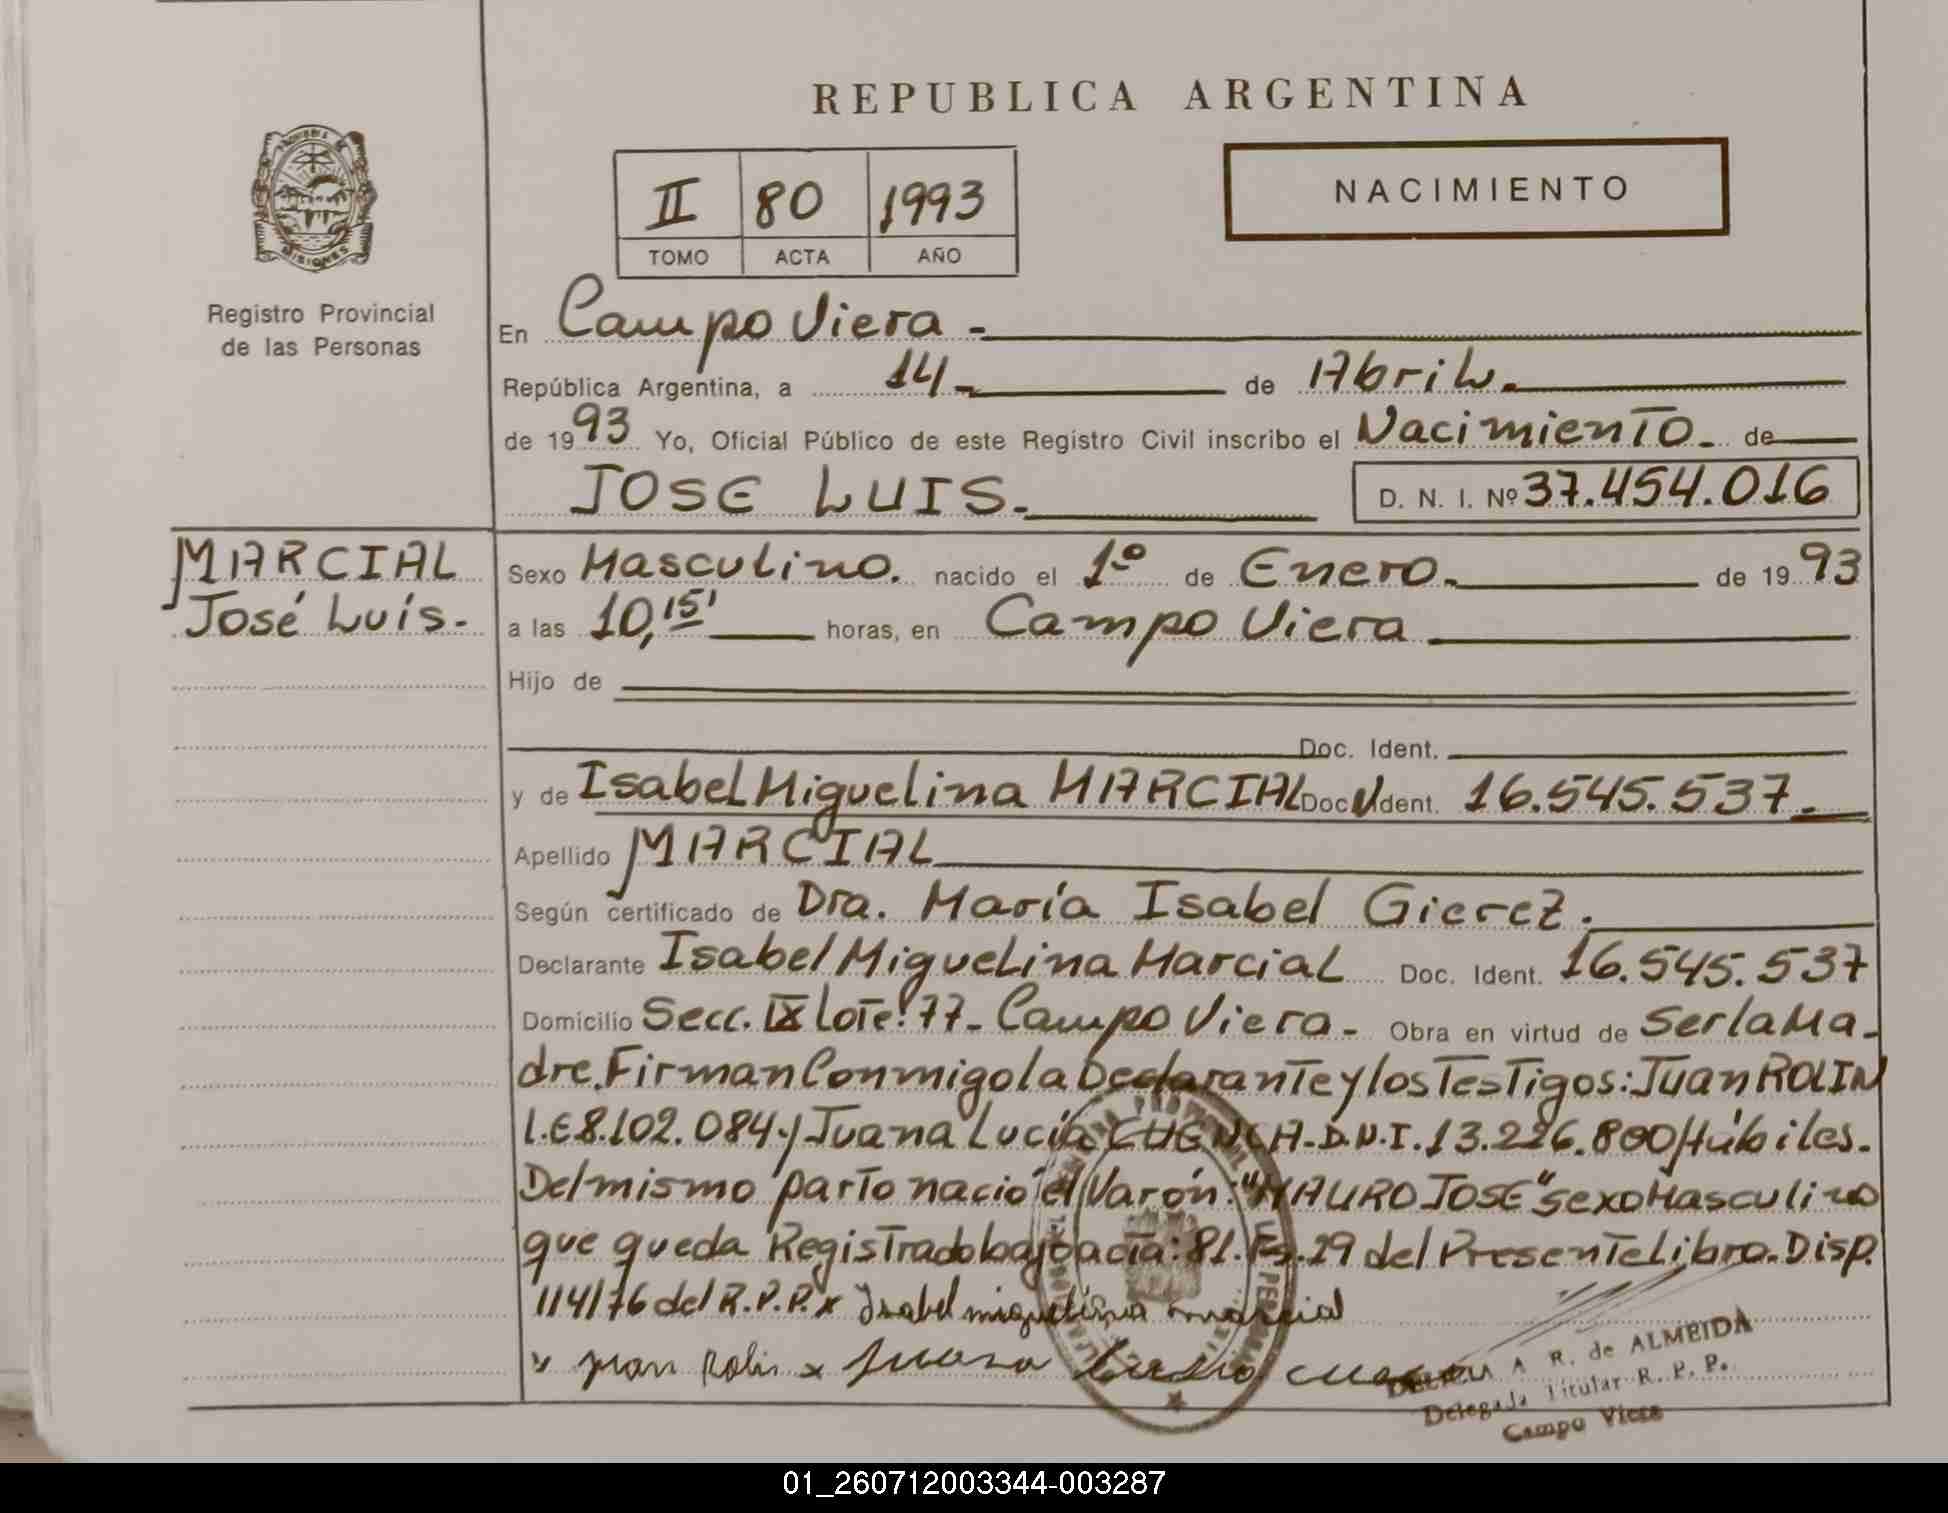 REPUBLICA ARGENTINA
NACIMIENTO
II 80 1993
TOMO ACTA AÑO
PROVINCIA DE MISIONES
Registro Provincial
de las Personas
En Campo Viera -
República Argentina, a 14 - de Abril.
de 1993 Yo, Oficial Público de este Registro Civil inscribo el Nacimiento - de
JOSE LUIS. -
D. N. I. Nº 37.454.016
MARCIAL
José Luís. -
Sexo Masculino. nacido el 1º de Enero. de 1993
a las 10,15' horas, en Campo Viera
Hijo de
Doc. Ident.
y de Isabel Miguelina MARCIAL Doc. Ident. 16.545.537. -
Apellido MARCIAL
Según certificado de Dra. María Isabel Gierez.
Declarante Isabel Miguelina Marcial Doc. Ident. 16.545.537
Domicilio Secc. IX Lote: 77 - Campo Viera - Obra en virtud de ser la Ma -
dre. Firman Conmigo la Declarante y los Testigos: Juan ROLIN
L.E 8.102.084 y Juana Lucía CUENCA - D.N.I. 13.226.800 Hábiles. -
Del mismo parto nació el Varón: "MAURO JOSE" sexo Masculino
que queda Registrado bajo acta: 81. Fs. 29 del Presente Libro. Disp.
114/76 del R.P.P. x Isabel miguelina marcial
x juan Rolin x Juana Lucia
A R. de ALMEIDA
Delegada Titular R. P. P.
Campo Viera
01_260712003344-003287